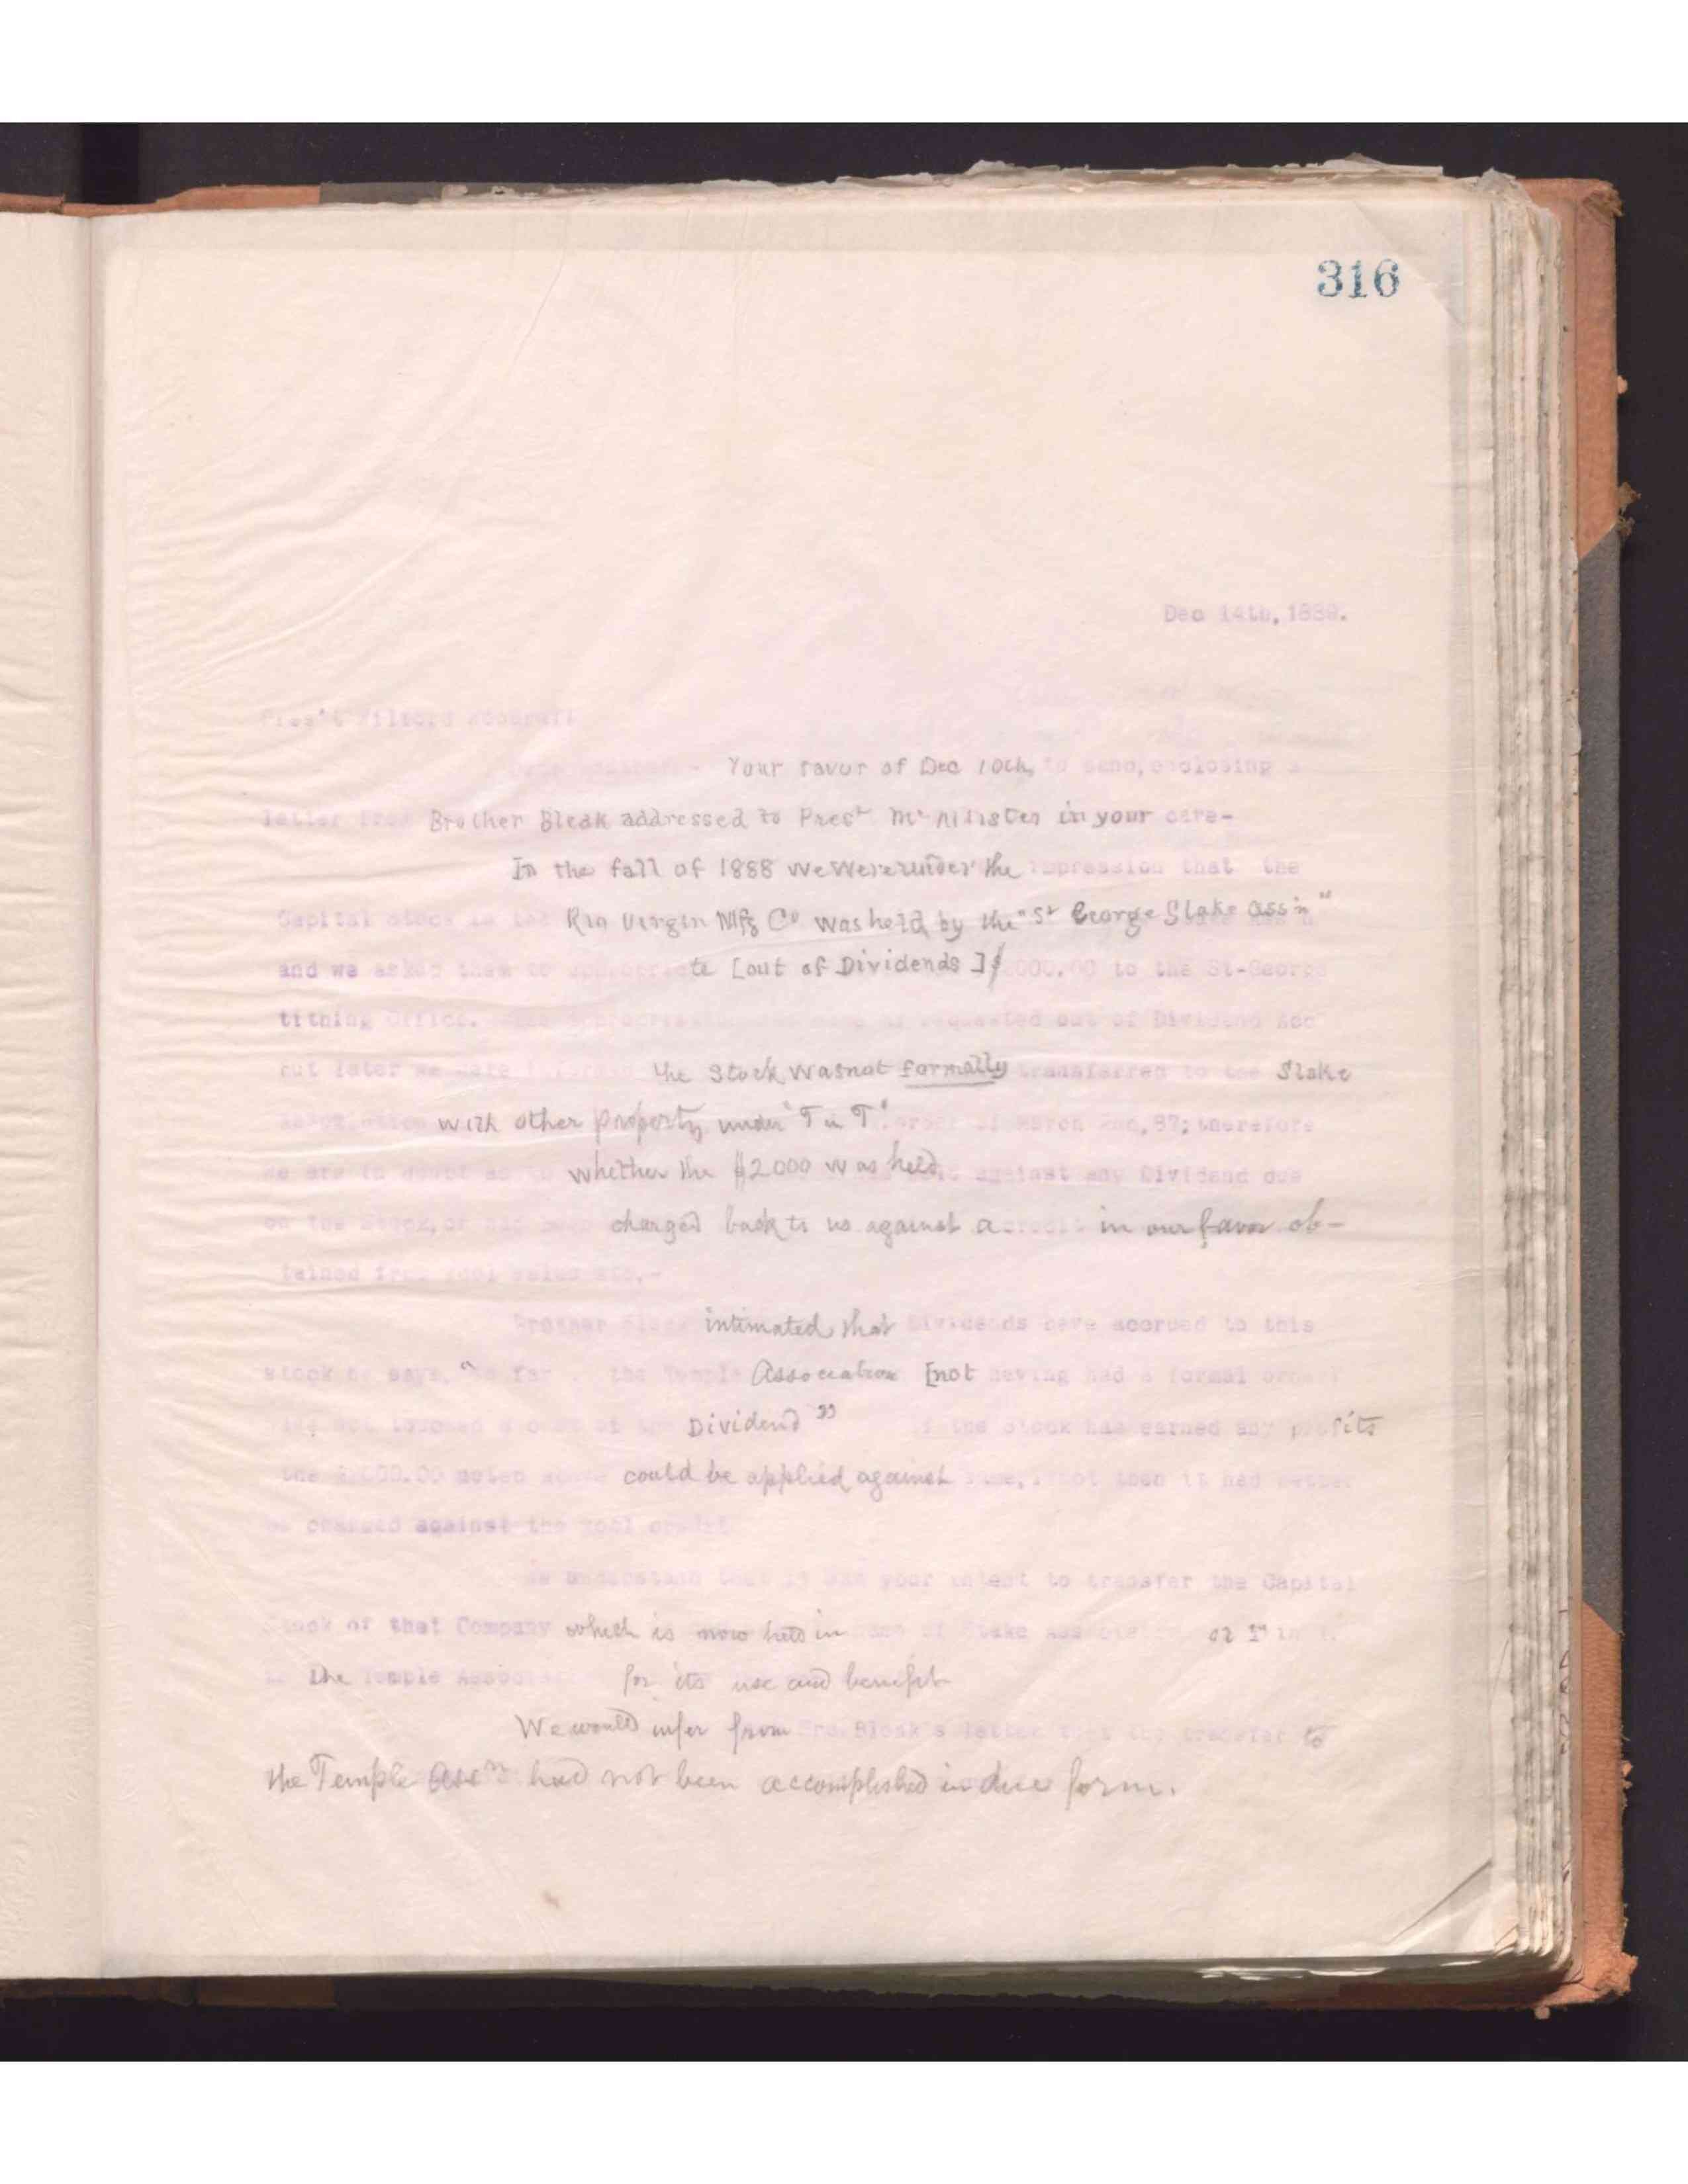 316
Dec 14th, 1889.
Pres't Wilford Woodruff
Your favor of Dec 10th, to hand, enclosing a
letter from Brother Bleak addressed to Prest Mc Allister in your care-
In the fall of 1888 we were under the impression that the
Capital stock in the Rio Virgin Mfg Co was held by the "St George Stake Ass'n"
and we asked them to appropriate [out of Dividends] $2000.00 to the St-George
tithing Office. The appropriation was made as requested out of Dividend Acc
but later we were informed the Stock was not formally transferred to the Stake
Association with other property under "T in T" order of March 2nd, 87; therefore
we are in doubt as to whether the $2000 was held against any Dividend due
on the Stock, or had been charged back to us against a credit in our favor ob-
tained from wool sales etc.-
Brother Bleak intimated that Dividends have accrued to this
stock he says, "So far the Temple Association [not having had a formal order
has not touched a cent of the Dividend" If the stock has earned any profits
the $2000.00 noted above could be applied against same, if not then it had better
be charged against the wool credit
We understand that it was your intent to transfer the Capital
Stock of that Company which is now held in name of Stake Association or T in T.
to the Temple Association for its use and benefit
We would infer from Bro. Bleak's letter that the transfer to
the Temple Assn had not been accomplished in due form.